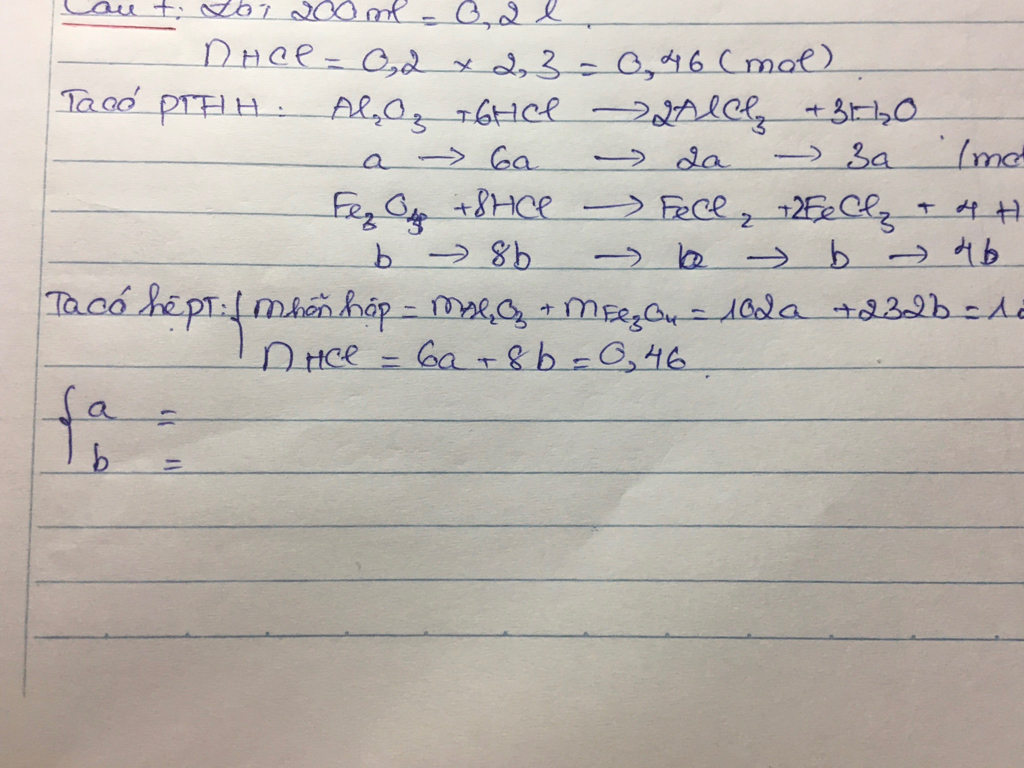 Câu 1: Đổi 200ml = 0,2 l
nHCl = 0,2 × 2,3 = 0,46 (mol)
Ta có PTHH: Al₂O₃ + 6HCl → 2AlCl₃ + 3H₂O
a → 6a → 2a → 3a (mo
Fe₃O₄ + 8HCl → FeCl₂ + 2FeCl₃ + 4H
b → 8b → b → b → 4b
Ta có hệ PT: { m hỗn hợp = mAl₂O₃ + mFe₃O₄ = 102a + 232b = 1
nHCl = 6a + 8b = 0,46.
{ a =
b =